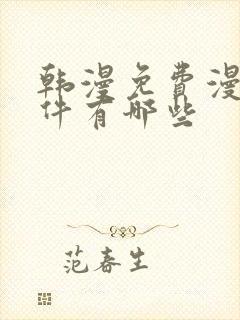 韩漫免费漫
件有哪些
范春生